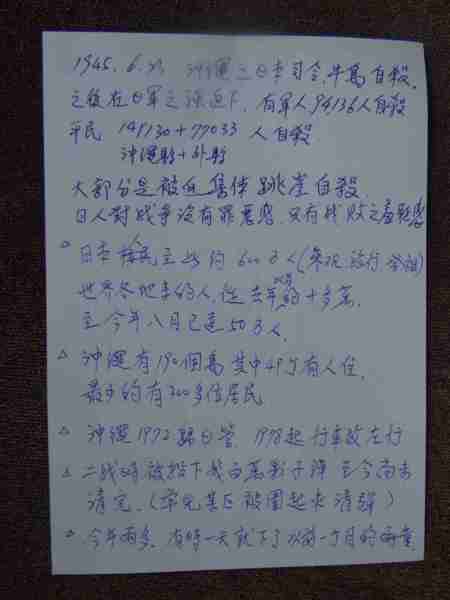 1945.6.23 沖繩之日本司令牛島自殺,
之後在日軍之強迫下, 有軍人94,136人自殺
平民 149130+77033 人自殺
沖繩縣+外縣
大部分是被迫集體跳崖自殺,
日人對战争沒有罪惡感, 只有战敗之羞恥感
日本 至此約 600万人(參觀, 旅行, 會親)
世界各地來的人, 從去年的十多萬,
至今年八月已達50万人,
△ 沖繩有190個島 其中49个有人住,
最少的有300多位居民
△ 沖繩1972歸日管, 1978起行車改左行
△ 二战時被投下 百萬 子彈 至今尚未
清完,(常見某区被圍起來清彈)
今年雨多, 有時一天就下了以前一个月的雨量,